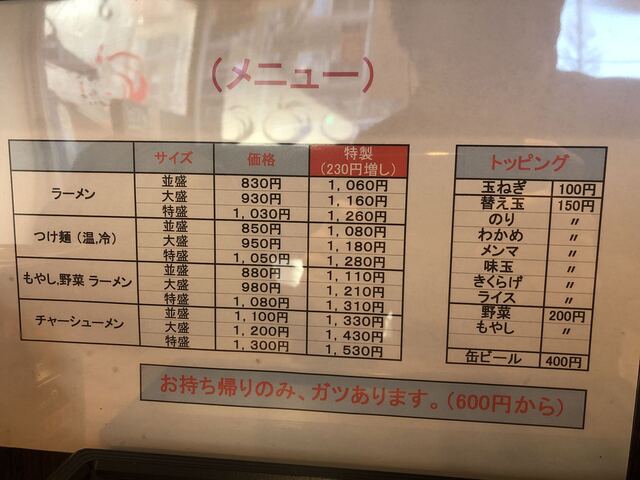 (メニュー)
サイズ 価格 特製
(230円増し)
ラーメン 並盛 830円 1,060円
大盛 930円 1,160円
特盛 1,030円 1,260円
つけ麺(温,冷) 並盛 850円 1,080円
大盛 950円 1,180円
特盛 1,050円 1,280円
もやし,野菜 ラーメン 並盛 880円 1,110円
大盛 980円 1,210円
特盛 1,080円 1,310円
チャーシューメン 並盛 1,100円 1,330円
大盛 1,200円 1,430円
特盛 1,300円 1,530円
トッピング
玉ねぎ 100円
替え玉 150円
のり 〃
わかめ 〃
メンマ 〃
味玉 〃
きくらげ 〃
ライス 〃
野菜 200円
もやし 〃
缶ビール 400円
お持ち帰りのみ、ガツあります。(600円から)